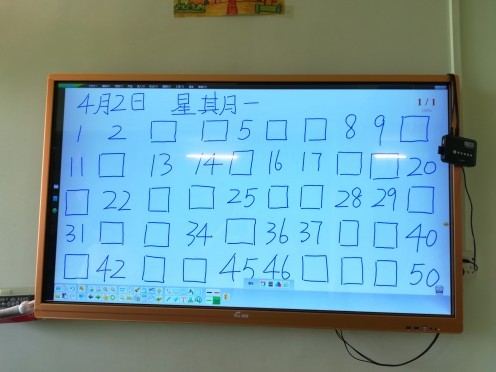 4月2日 星其月一
1/1
1 2 □ □ 5 □ □ 8 9 □
11 □ 13 14 □ 16 17 □ □ 20
□ 22 □ □ 25 □ □ 28 29 □
31 □ □ 34 □ 36 37 □ □ 40
□ 42 □ □ 45 46 □ □ □ 50